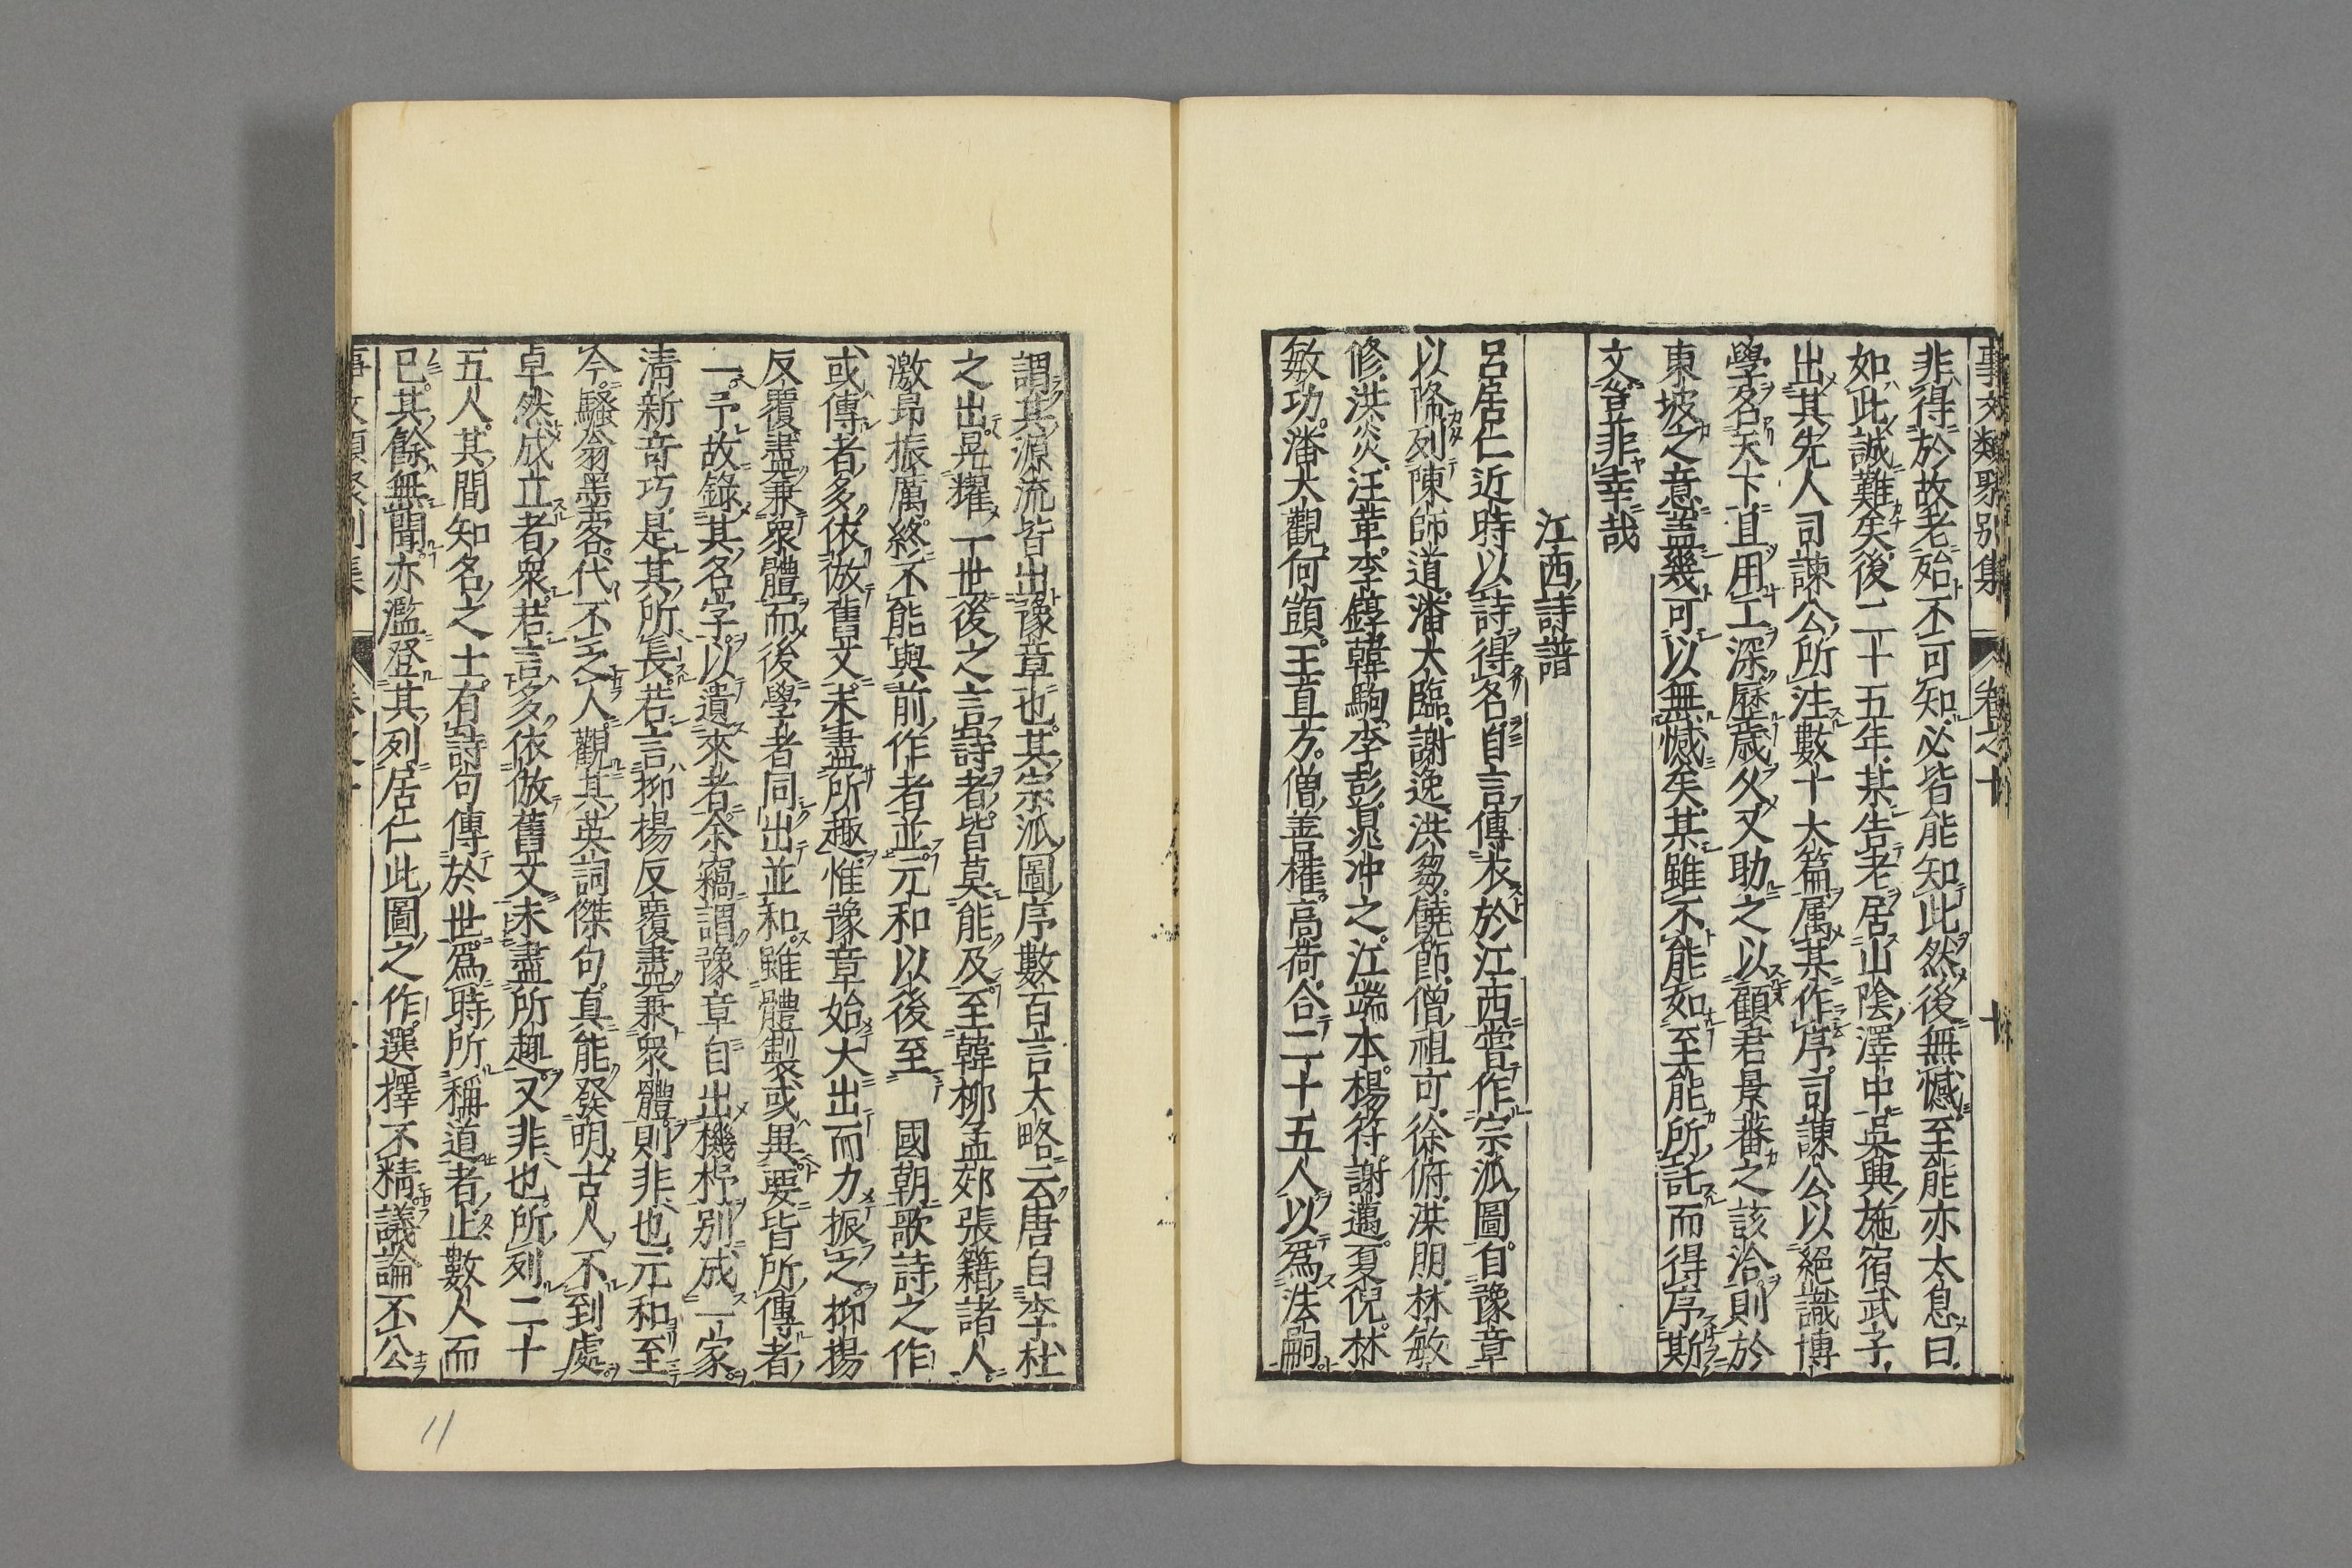 事文類聚別集 卷之十 十
非得於故老殆不可知必皆能知此然後無憾至能亦太息曰
如此誠難矣後二十五年某告老居山陰澤中吳興施宿武子
出其先人司諫公所注數十大篇属某作序司諫公以絕識博
學名天下且用工深歷歲久又助之以顧君景蕃之該洽則於
東坡之意盖幾可以無憾矣某雖不能如至能所託而得序斯
文豈非幸哉
江西詩譜
呂居仁近時以詩得名自言傳衣於江西嘗作宗派圖自豫章
以降列陳師道潘大臨謝逸洪芻饒節僧祖可徐俯洪朋林敏
修洪炎汪革李錞韓駒李彭晁冲之江端本楊符謝薖夏倪林
敏功潘大觀何顗王直方僧善權高荷合二十五人以爲法嗣
謂其源流皆出豫章也其宗派圖序數百言大略云唐自李杜
之出晃耀一世後之言詩者皆莫能及至韓柳孟郊張籍諸人
激昂振厲終不能與前作者並元和以後至 國朝歌詩之作
或傳者多依倣舊文未盡所趣惟豫章始大出而力振之抑揚
反覆盡兼衆體而後學者同出並和雖體製或異要皆所傳者
一予故錄其名字以遺來者余竊謂豫章自出機杼别成一家
淸新竒巧是其所長若言抑揚反覆盡兼衆體則非也元和至
今騷翁墨客代不乏人觀其英詞傑句真能發明古人不到處
卓然成立者衆若言多依倣舊文未盡所趣又非也所列二十
五人其間知名之士有詩句傳於世爲時所稱道者止數人而
已其餘無聞亦濫登其列居仁此圖之作選擇不精議論不公